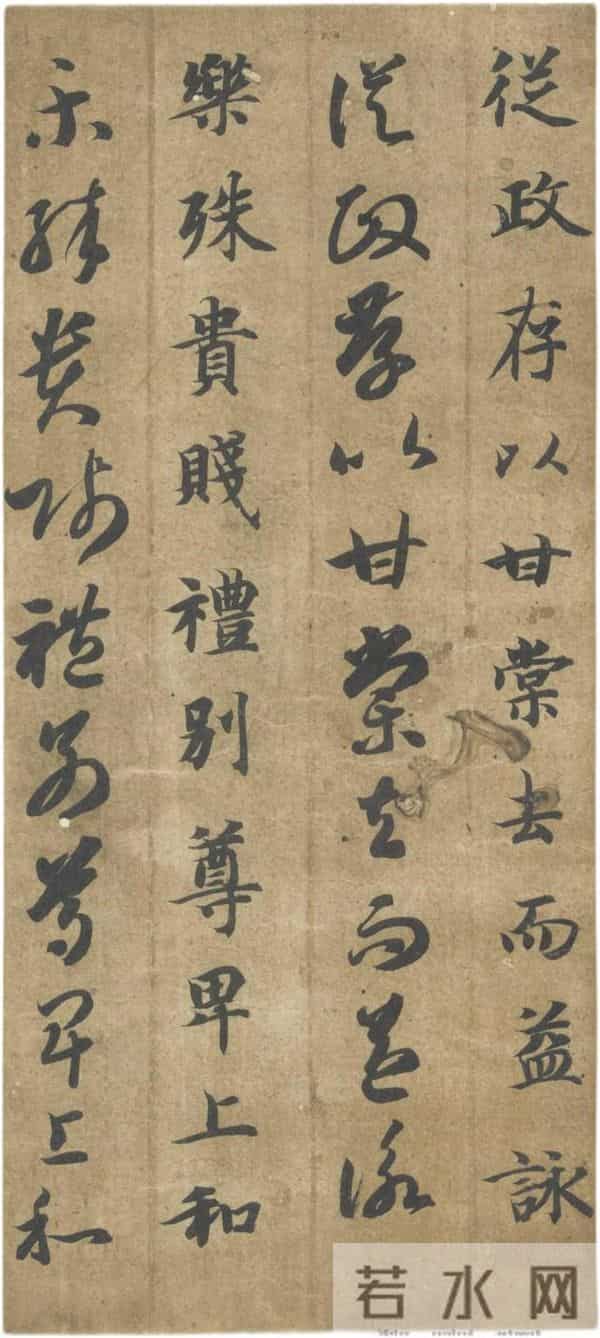 從政存以甘棠去而益詠
從政存以甘棠去而益詠
樂殊貴賤禮別尊卑上和
樂殊貴賤禮別尊卑上和
若水网